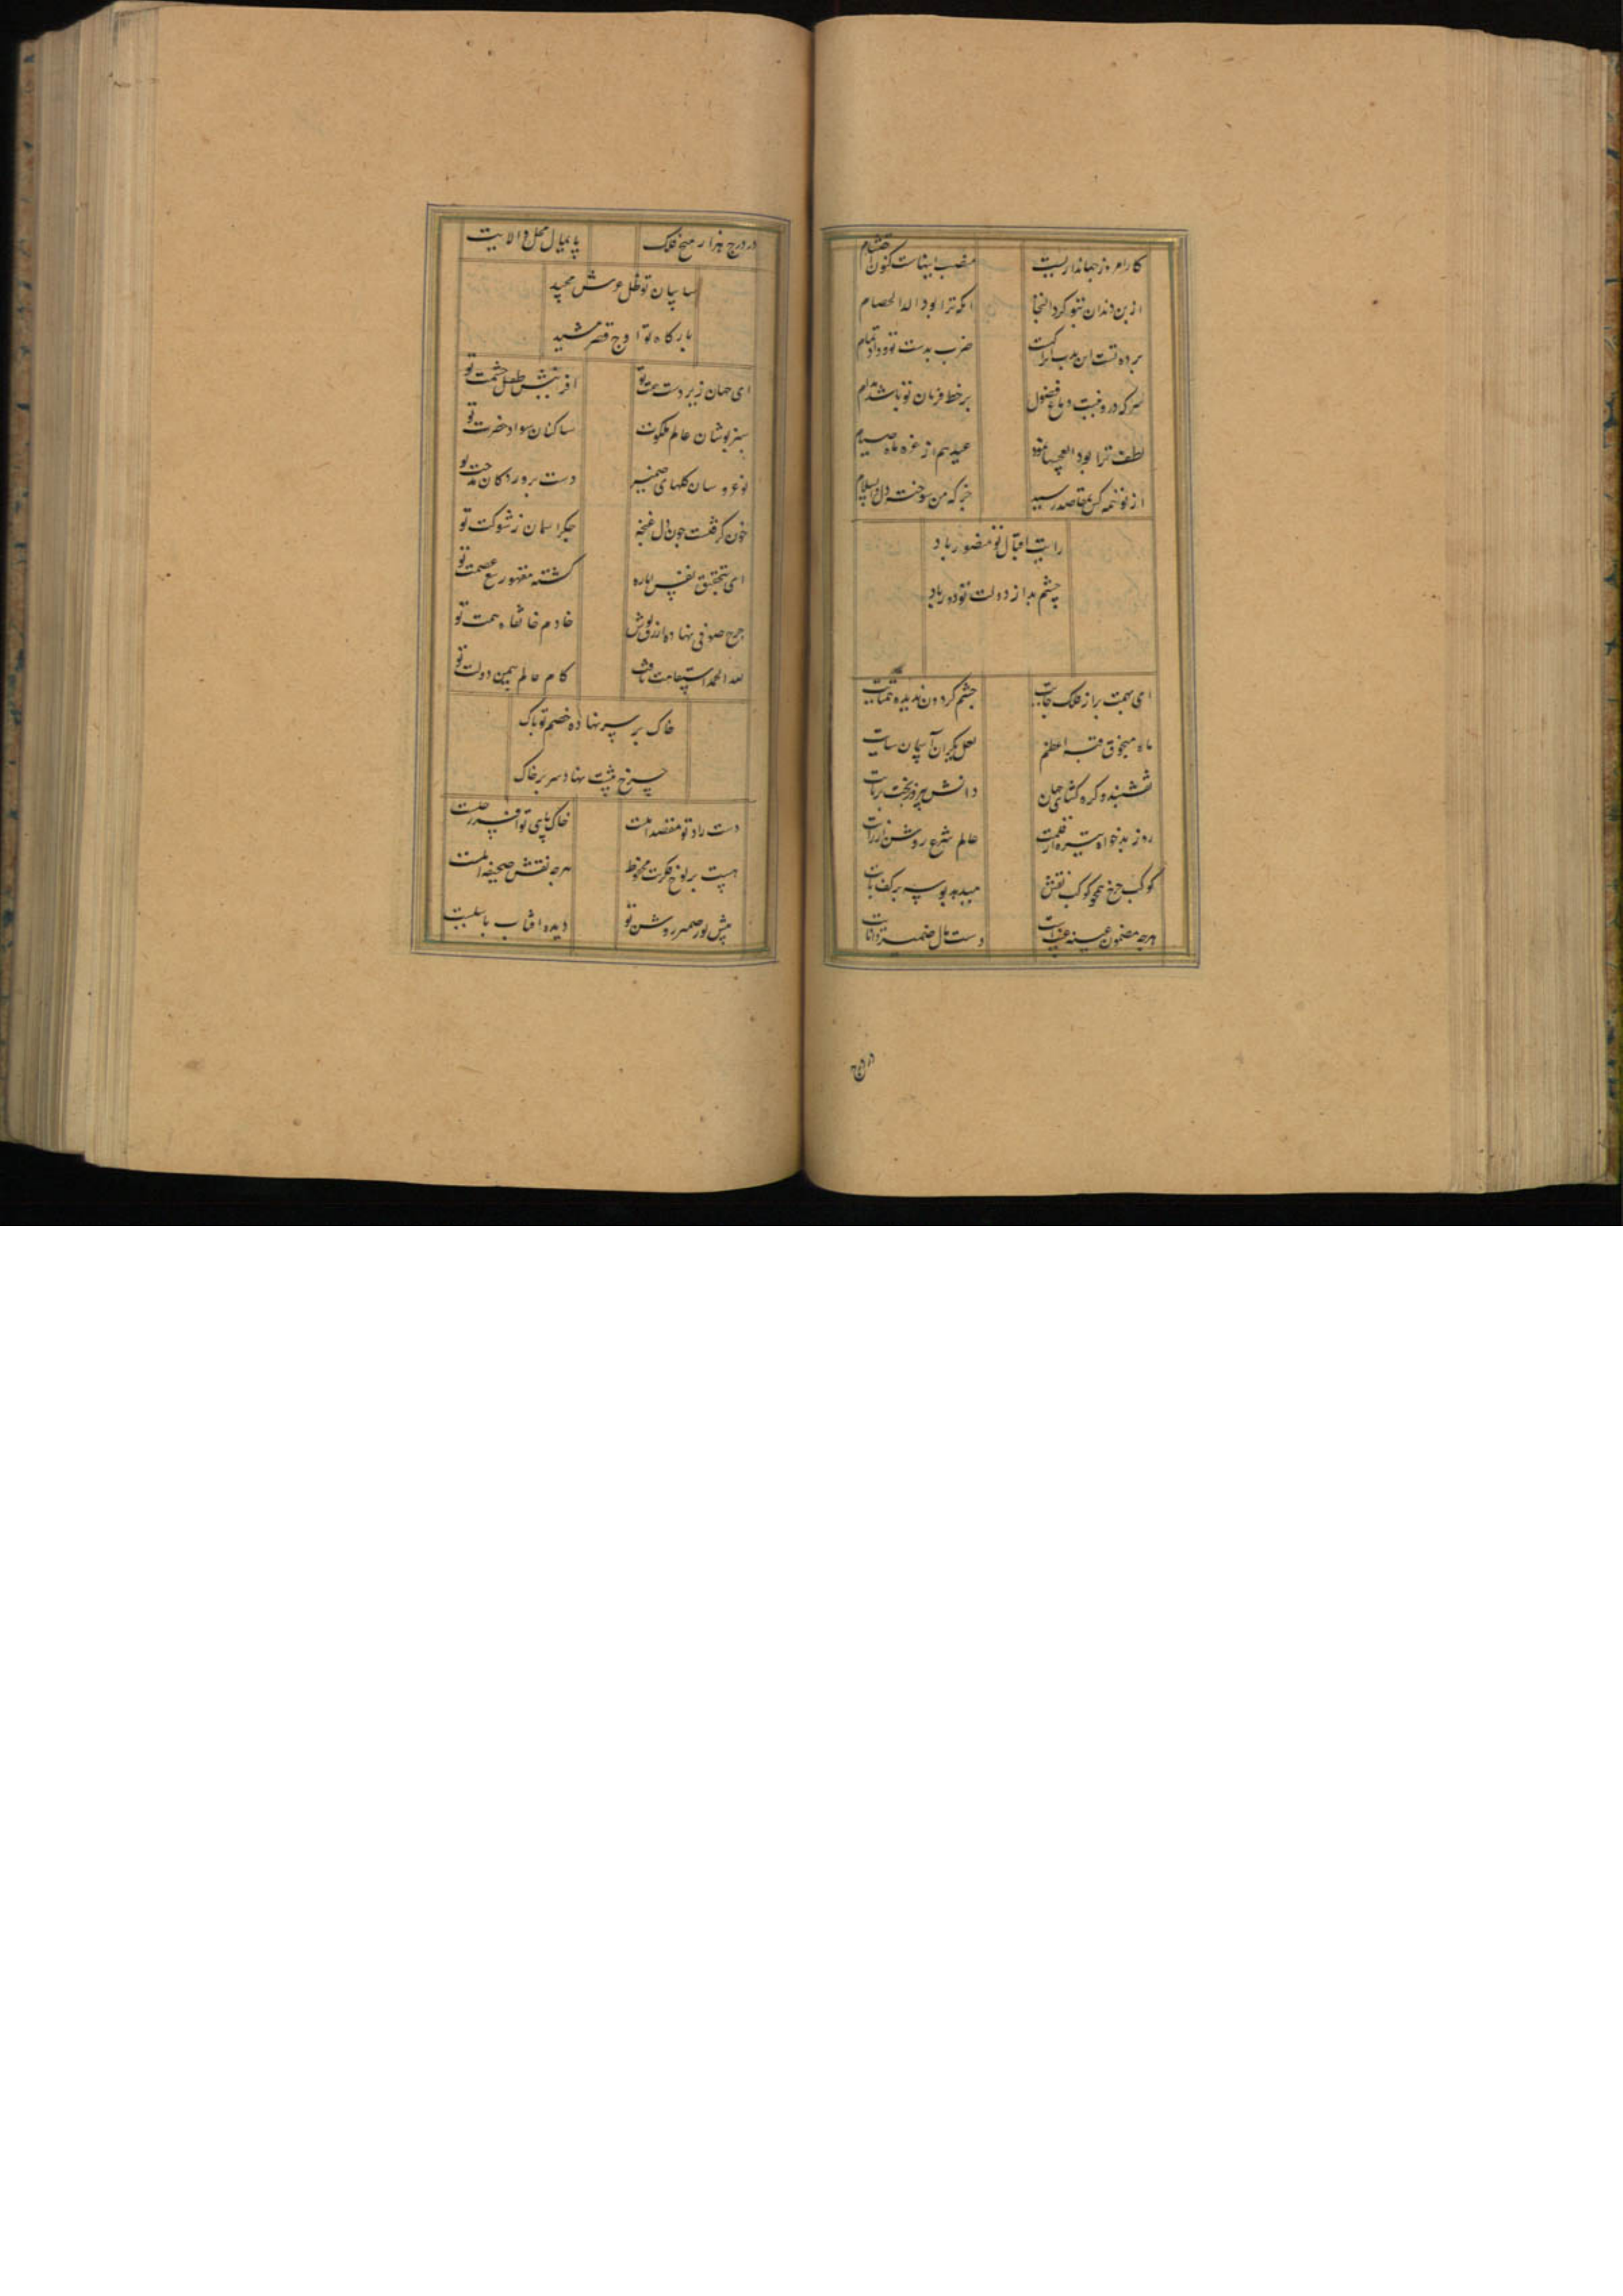 کار امروز جهانداریست منصب اینهات کنون احتشام
از بن دندان بتو کرد التجا آنکه ترا بود الد الخصام
ضرب بدست تو و داد تمام
سر که درو نیست دماغ فضول بر خط فرمان تو باشد مدام
لطف ترا بود عید هم از غره ماه صیام
از تو همه کس بمقاصد رسید جز که من سوخته دل والسلام
رایت اقبال تو منصور باد
چشم بد از دولت تو دور باد
ای بهمت براز فلک جایت چشم گردون ندیده همتایت
ماه منجوق قبه اعظم لعل یکران آسمان سایت
نقشبند و گره گشای جهان دانش پیر و بخت برنایت
روز بدخواه تیره از قلمت عالم شرع روشن از رایت
کوکب چرخ همچو کوکب نقش میدهد بوسه بر کف پایت
هرچه مضمون دست مال ضمیر دانایت
در درج
در درج هزار میخ فلک پایمال محل والایت
سایبان تو ظل عرش مجید
بارگاه تو اوج قصر مشید
ای جهان زیر دست همت تو آفرینش طفیل حشمت تو
سبزپوشان عالم ملکوت ساکنان سواد حضرت تو
نوعروسان گلهای ضمیر دست پروردگان مدحت تو
خون گرفتست چون دل غنچه جگر آسمان ز شوکت تو
ای بتحقیق نفس اماره گشته مقهور تیغ عصمت تو
چرخ صوفی نهاد ازرق پوش خادم خانقاه همت تو
لله الحمد استقامت یافت کام عالم بیمن دولت تو
خاک بر سر نهاده خصم تو باک
چرخ پشت نهاد سر بر خاک
دست راد تو مقصد املست خاک پای تو افسر زحلست
هست بر لوح فکرت محفوظ هرچه نقش صحیفه ازلست
پیش نور ضمیر روشن تو دیده آفتاب با سبلست